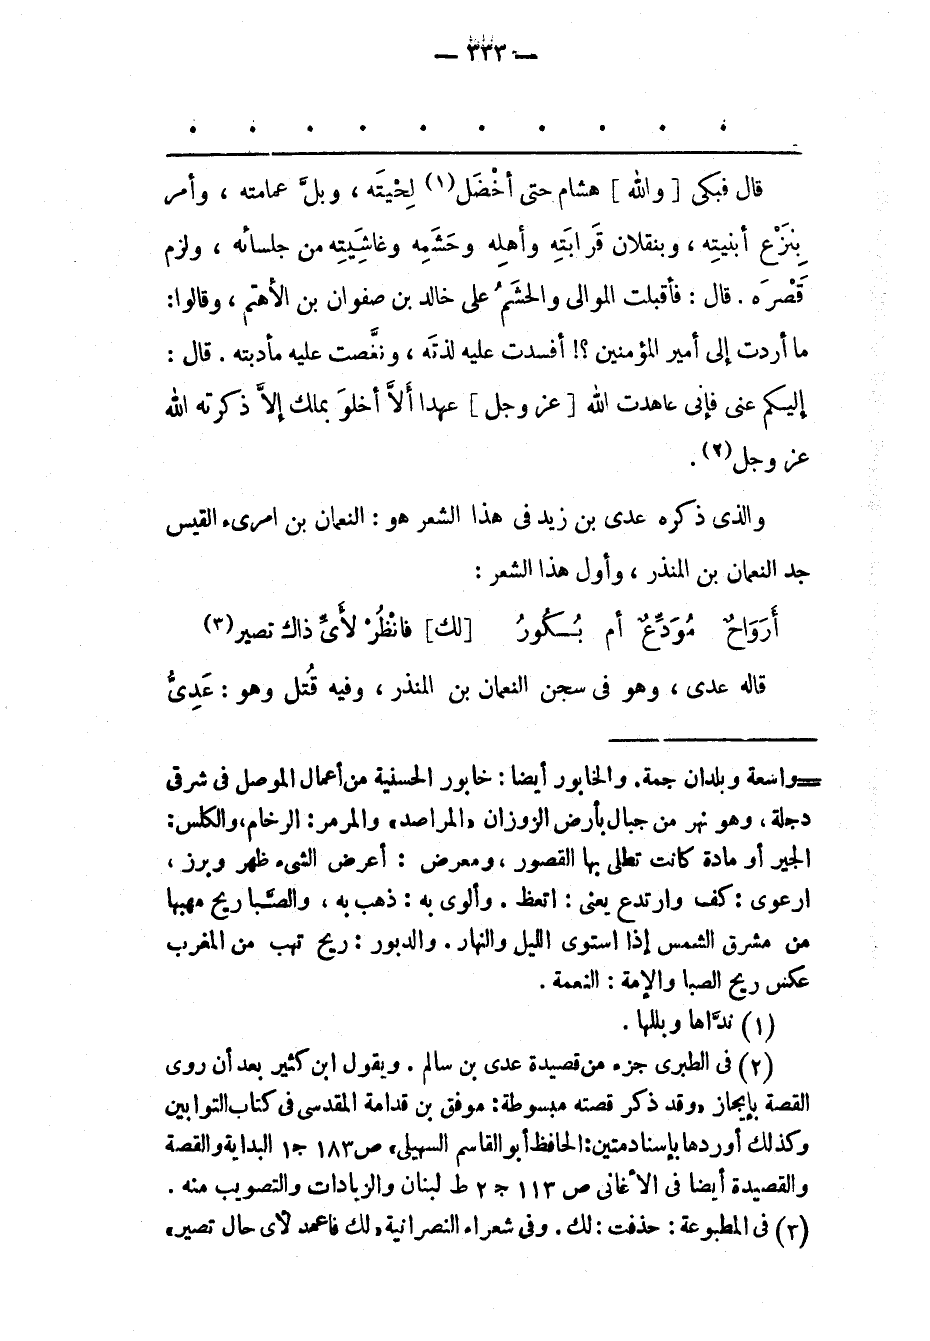 — ٣٣٣ —
. . . . . . . . . .
قال فبكى [ والله ] هشام حتى أخْضَل(١) لِحْيتَه ، وبلَّ عمامته ، وأمر
بِنَزْع أبنيتِه ، وبنقلان قَرابَتِه وأهلِه وحَشَمِه وغاشِيَتِه من جلسائه ، ولزم
قَصْرَه . قال : فأقبلت الموالى والحشَمُ على خالد بن صفوان بن الأهتم ، وقالوا :
ما أردت إلى أمير المؤمنين ؟! أفسدت عليه لذتَه ، ونغَّصت عليه مأدبته . قال :
إليكم عنى فإنى عاهدت الله [ عز وجل ] عهدا ألاَّ أخلوَ بملك إلاَّ ذكرته الله
عز وجل(٢) .
والذى ذكره عدى بن زيد فى هذا الشعر هو : النعمان بن امرىء القيس
جد النعمان بن المنذر ، وأول هذا الشعر :
أَرَوَاحٌ مُوَدِّعٌ أم بُكُورُ [لك] فانْظُرْ لأَىِّ ذاك تصير(٣)
قاله عدى ، وهو فى سجن النعمان بن المنذر ، وفيه قُتل وهو : عَدِىُّ
= واسعة وبلدان جمة . والخابور أيضا : خابور الحسنية من أعمال الموصل فى شرقى
دجلة ، وهو نهر من جبال بأرض الزوزان «المراصد» والمرمر : الرخام، والكلس :
الجير أو مادة كانت تطلى بها القصور ، ومعرض : أعرض الشىء ظهر وبرز ،
ارعوى : كف وارتدع يعنى : اتعظ . وألوى به : ذهب به ، والصَّبا ريح مهبها
من مشرق الشمس إذا استوى الليل والنهار . والدبور : ريح تهب من المغرب
عكس ريح الصبا والإمة : النعمة .
(١) ندَّاها وبللها .
(٢) فى الطبرى جزء من قصيدة عدى بن سالم . ويقول ابن كثير بعد أن روى
القصة بإيجاز «وقد ذكر قصته مبسوطة : موفق بن قدامة المقدسى فى كتاب التوابين
وكذلك أوردها بإسناد متين : الحافظ أبو القاسم السهيلى» ص١٨٣ ج١ البداية والقصة
والقصيدة أيضا فى الأغانى ص ١١٣ ج ٢ ط لبنان والزيادات والتصويب منه .
(٣) فى المطبوعة : حذفت : لك . وفى شعراء النصرانية «لك فاعمد لأى حال تصير»